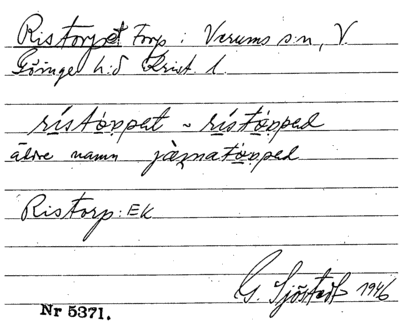 Ristorpet Torp i Verums s:n, V.
Göinge h:d Krist. l.
ristȯppet ~ ristȯpped
äldre namn järnatȯpped
Ristorp: EK
G. Sjöstedt 1946
Nr 5371.